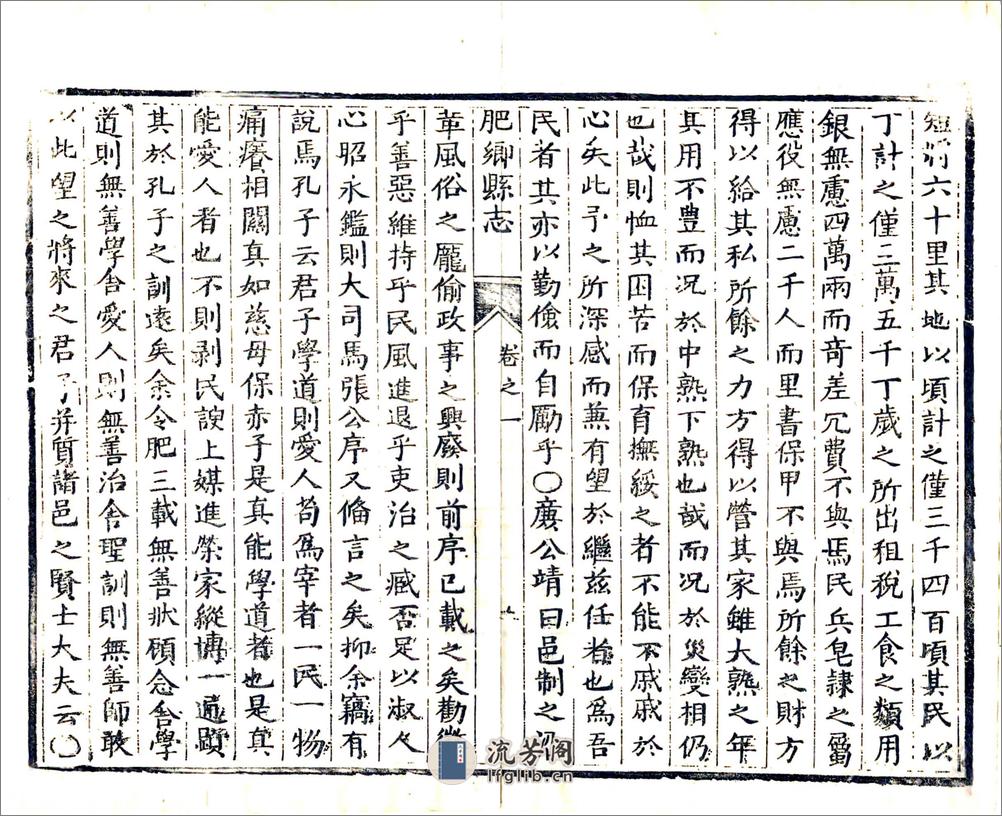 短川六十里其地以頃計之僅三千四百頃其民以
丁計之僅三萬五千丁歲之所出租稅工食之類用
銀無慮四萬兩而竒差冗費不與焉民兵皂隸之屬
應役無慮二千人而里書保甲不與焉所餘之財方
得以給其私所餘之力方得以營其家雖大熟之年
其用不豐而况於中熟下熟也哉而况於災變相仍
也哉則恤其困苦而保育撫綏之者不能不戚戚於
心矣此予之所深感而兼有望於繼茲任者也為吾
民者其亦以勤儉而自勵乎〇廣公靖曰邑制之沿
肥鄉縣志
卷之一
革風俗之厖偷政事之興廢則前序已載之矣勸懲
乎善惡維持乎民風進退乎吏治之臧否足以淑人
心昭永鑑則大司馬張公序又備言之矣抑余竊有
說焉孔子云君子學道則愛人苟為宰者一民一物
痛癢相關真如慈母保赤子是真能學道者也是真
能愛人者也不則剥民諛上媒進榮家縱博一通顯
其於孔子之訓遠矣余令肥三載無善狀顧念舍學
道則無善學舍愛人則無善治舍聖訓則無善師敢
以此望之將來之君子并質諸邑之賢士大夫云〇
流芳阁
lfglib.cn